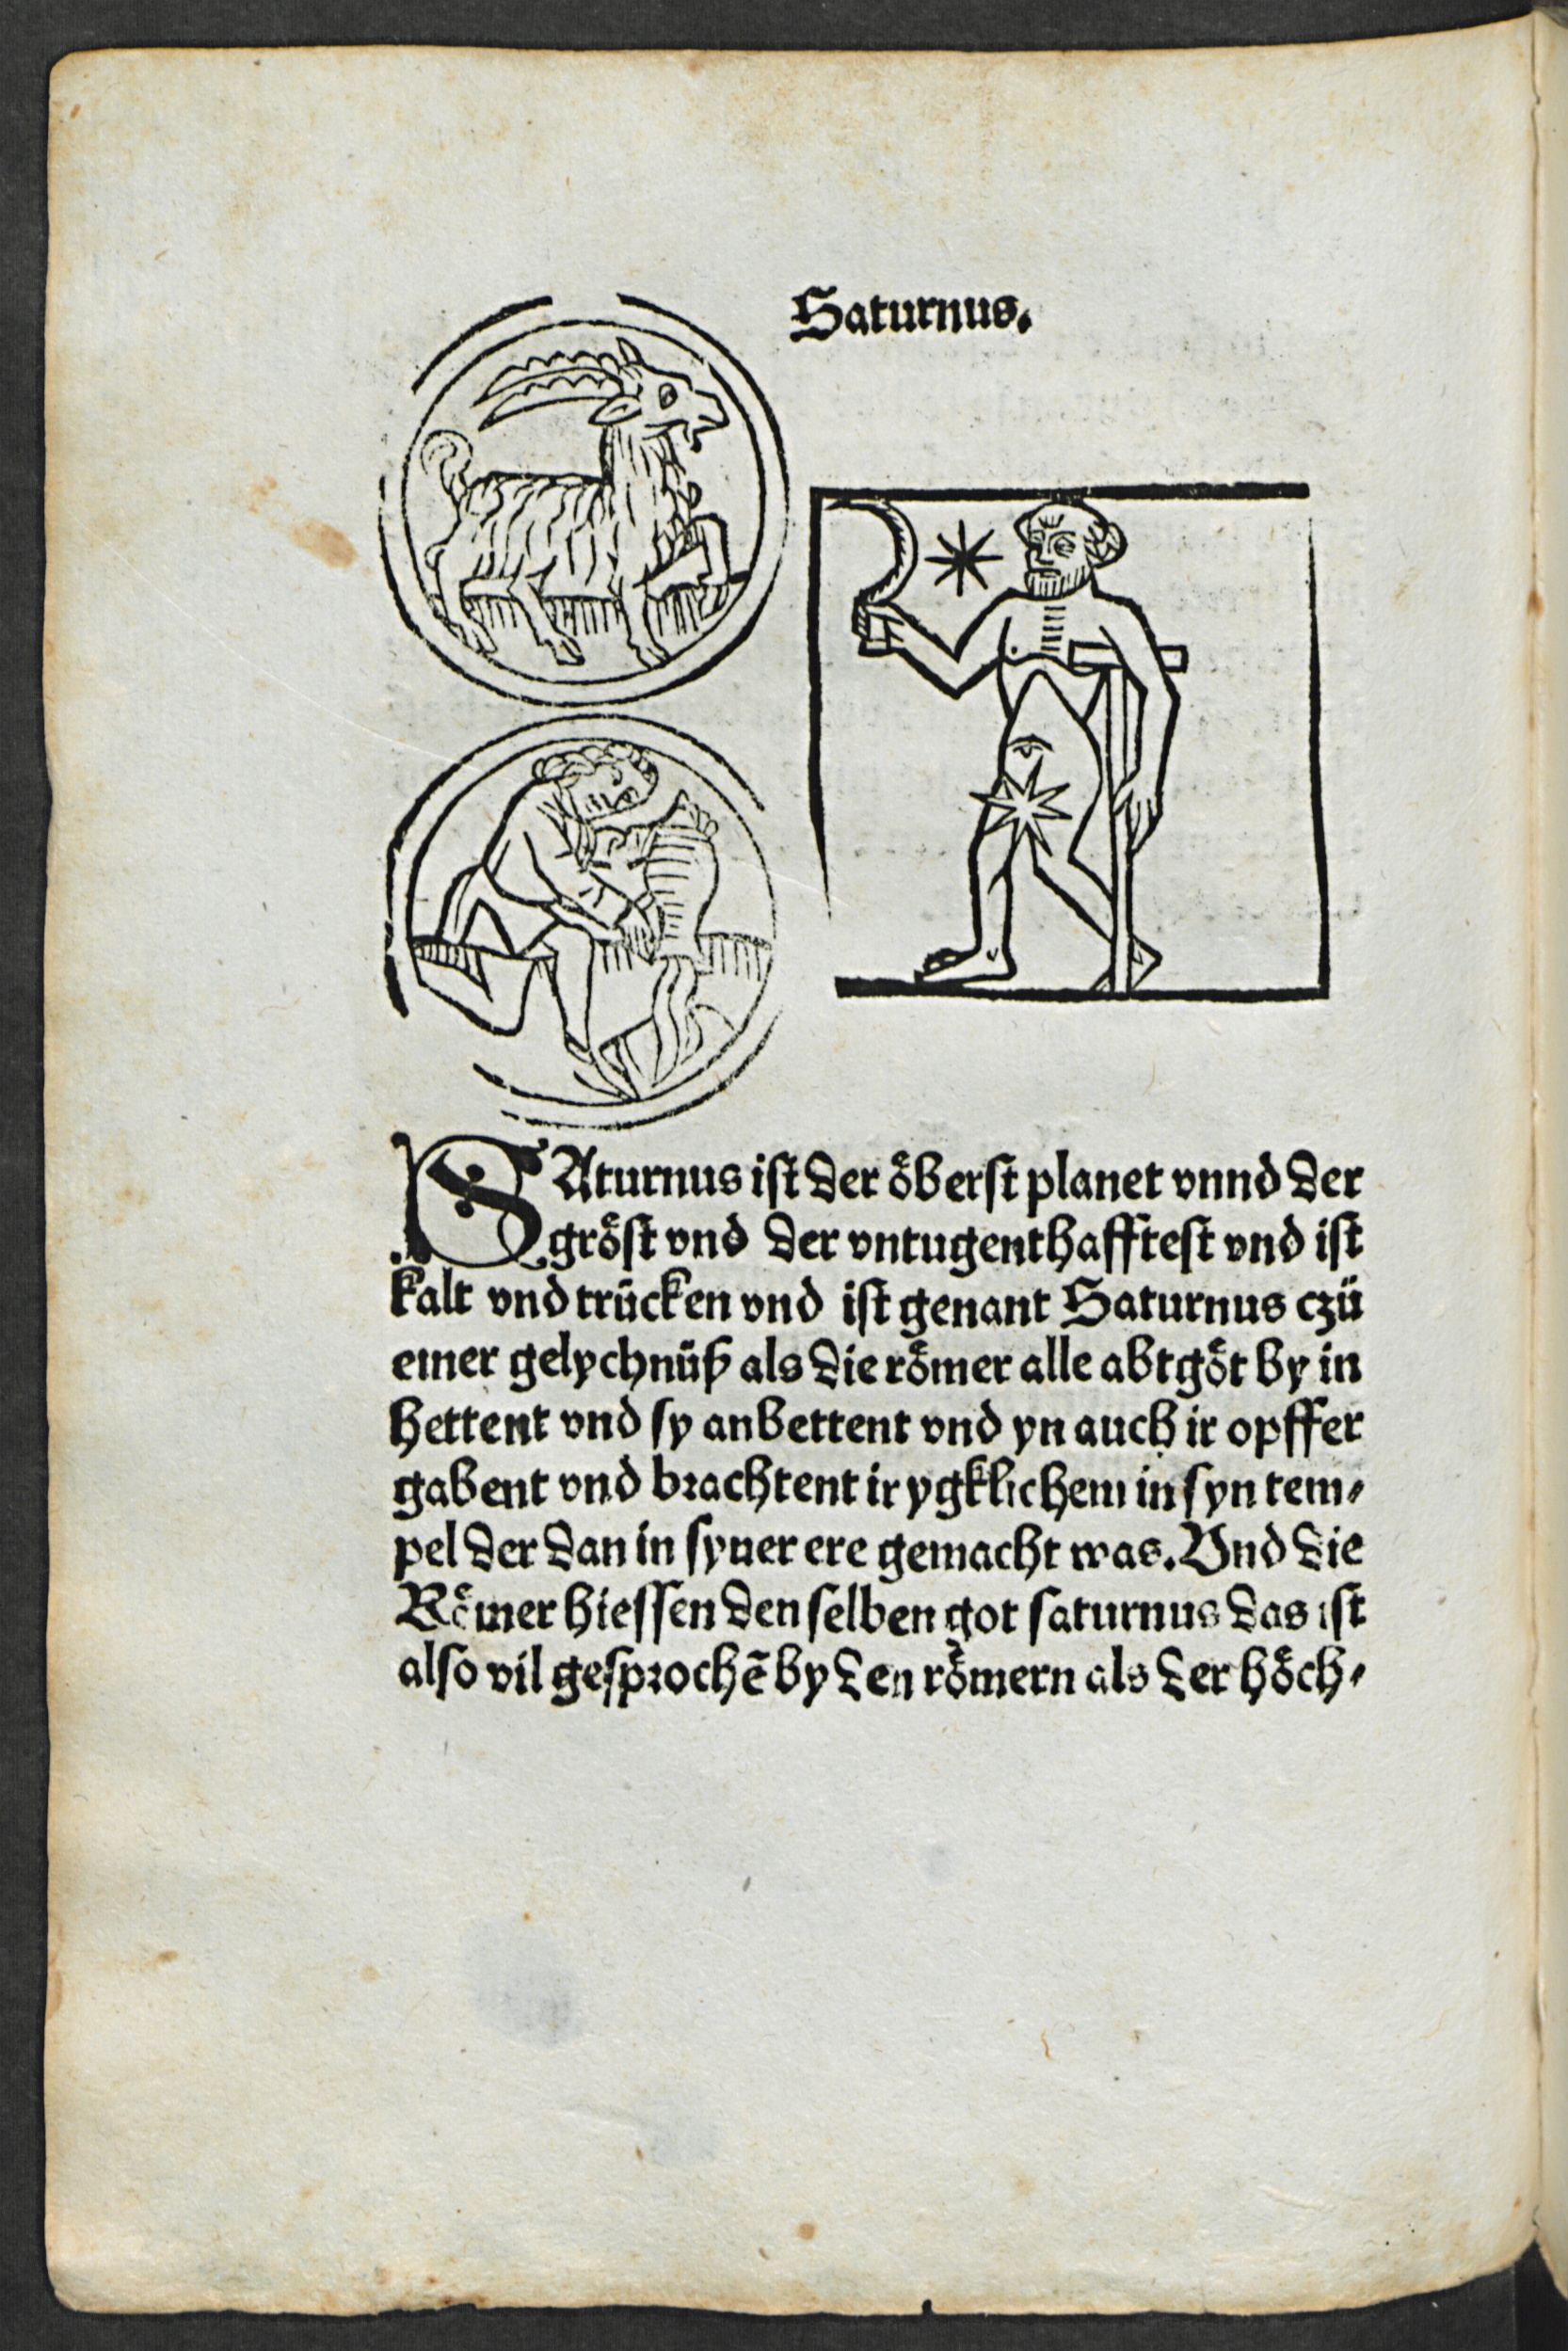 Saturnus.
SAturnus ist der öberst planet vnnd der
gröst vnd der vntugenthafftest vnd ist
kalt vnd trücken vnd ist genant Saturnus czü
einer gelychnüß als die römer alle abtgöt by in
hettent vnd sy anbettent vnd yn auch ir opffer
gabent vnd brachtent ir ygklichem in syn tem⸗
pel der dan in syner ere gemacht was. Vnd die
Römer hiessen den selben got saturnus das ist
also vil gesprochẽ by den römern als der höch⸗